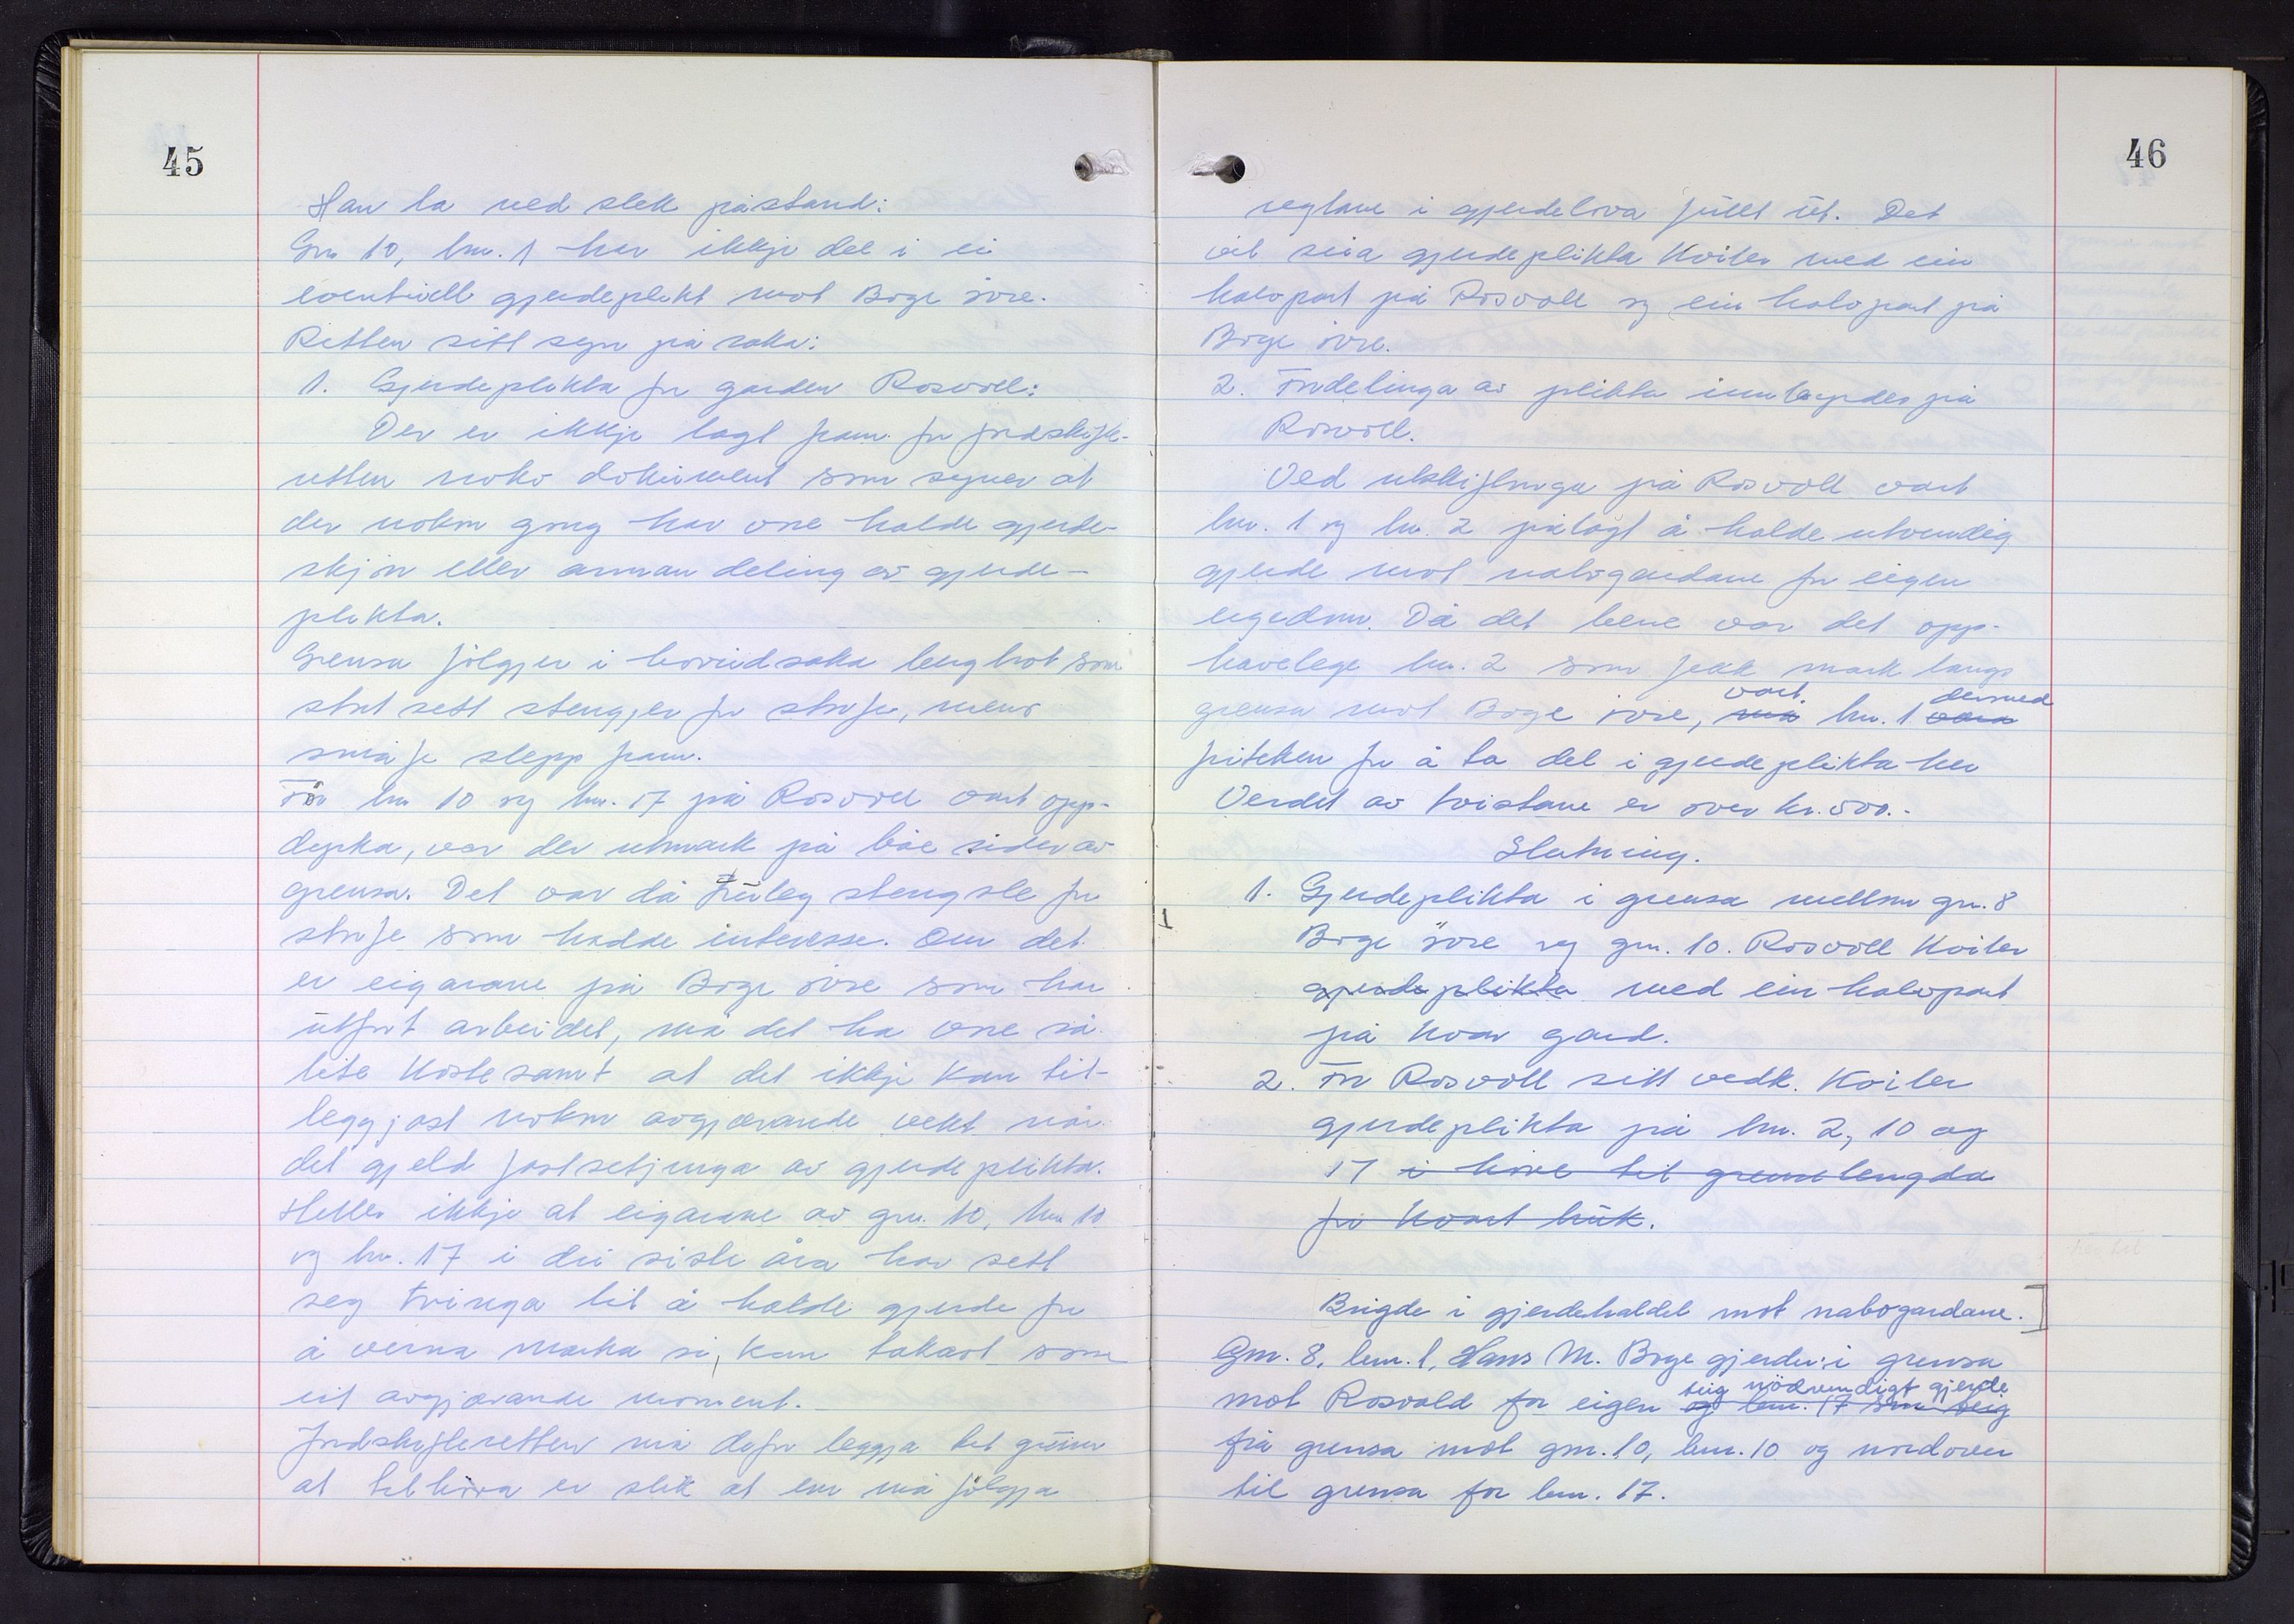 45
Han la ned slik påstand:
Gnr 10, bnr. 1 har ikkje del i ei
eventuell gjerdeplikt mot Boge øvre.
Retten sitt syn på saka:
1. Gjerdeplikta for garden Rosvoll:
Der er ikkje lagt fram for jordskifte-
retten noko dokument som syner at
der nokon gong har vore halde gjerde-
skjøn eller annan deling av gjerde-
plikta.
Grensa følgjer i hovudsaka lenghrot som
stort sett stengjer for storfe, mens
småfe slepp fram.
Før bnr 10 og bnr. 17 på Rosvoll vart opp-
dyrka, var der utmark på båe sider av
grensa. Det var då truleg stengsle for
storfe som hadde interesse. Om det
er eigarane på Boge øvre som har
utført arbeidet, må det ha vore så
lite kostesamt at det ikkje kan til-
leggjast nokon avgjerande vekt når
det gjeld fastsetjinga av gjerdeplikta.
Heller ikkje at eigarane av gnr. 10, bnr 10
og bnr. 17 i dei siste åra har sett
seg tvinga til å halde gjerde for
å verna marka si, kan takast som
eit avgjerande moment.
Jordskifteretten må difor leggja til grunn
at tilhøva er slik at ein må følgja
46
reglane i gjerdelova fullt ut. Det
vil seia gjerdeplikta kviler med ein
halvpart på Rosvoll og ein halvpart på
Boge øvre.
2. Fordelinga av plikta innbyrdes på
Rosvoll.
Ved utskiftinga på Rosvoll vart
bnr. 1 og bnr. 2 pålagt å halde utvendig
gjerde mot nabogardane for eigen
eigedom. Då det berre var det opp-
havelege bnr. 2 som fekk mark langs
grensa mot Boge øvre, må vart bnr. 1 vera dermed
friteken for å ta del i gjerdeplikta her
Verdet av tvistane er over kr. 500.-
Slutning.
1. Gjerdeplikta i grensa mellom gnr. 8
Boge øvre og gnr. 10. Rosvoll kviler
gjerdeplikta med ein halvpart
på kvar gard.
2. For Rosvoll sitt vedk. kviler
gjerdeplikta på bnr. 2, 10 og
17 i høve til grenselengda
for kvart bruk.
Brigde i gjerdehaldet mot nabogardane.
Gnr. 8, bnr. 1, Hans M. Boge gjerder i grensa
teig nödvendigt gjerde
mot Rosvold for eigen og bnr. 17 sin teig
frå grensa mot gnr. 10, bnr. 10 og nordover
til grensa for bnr. 17.